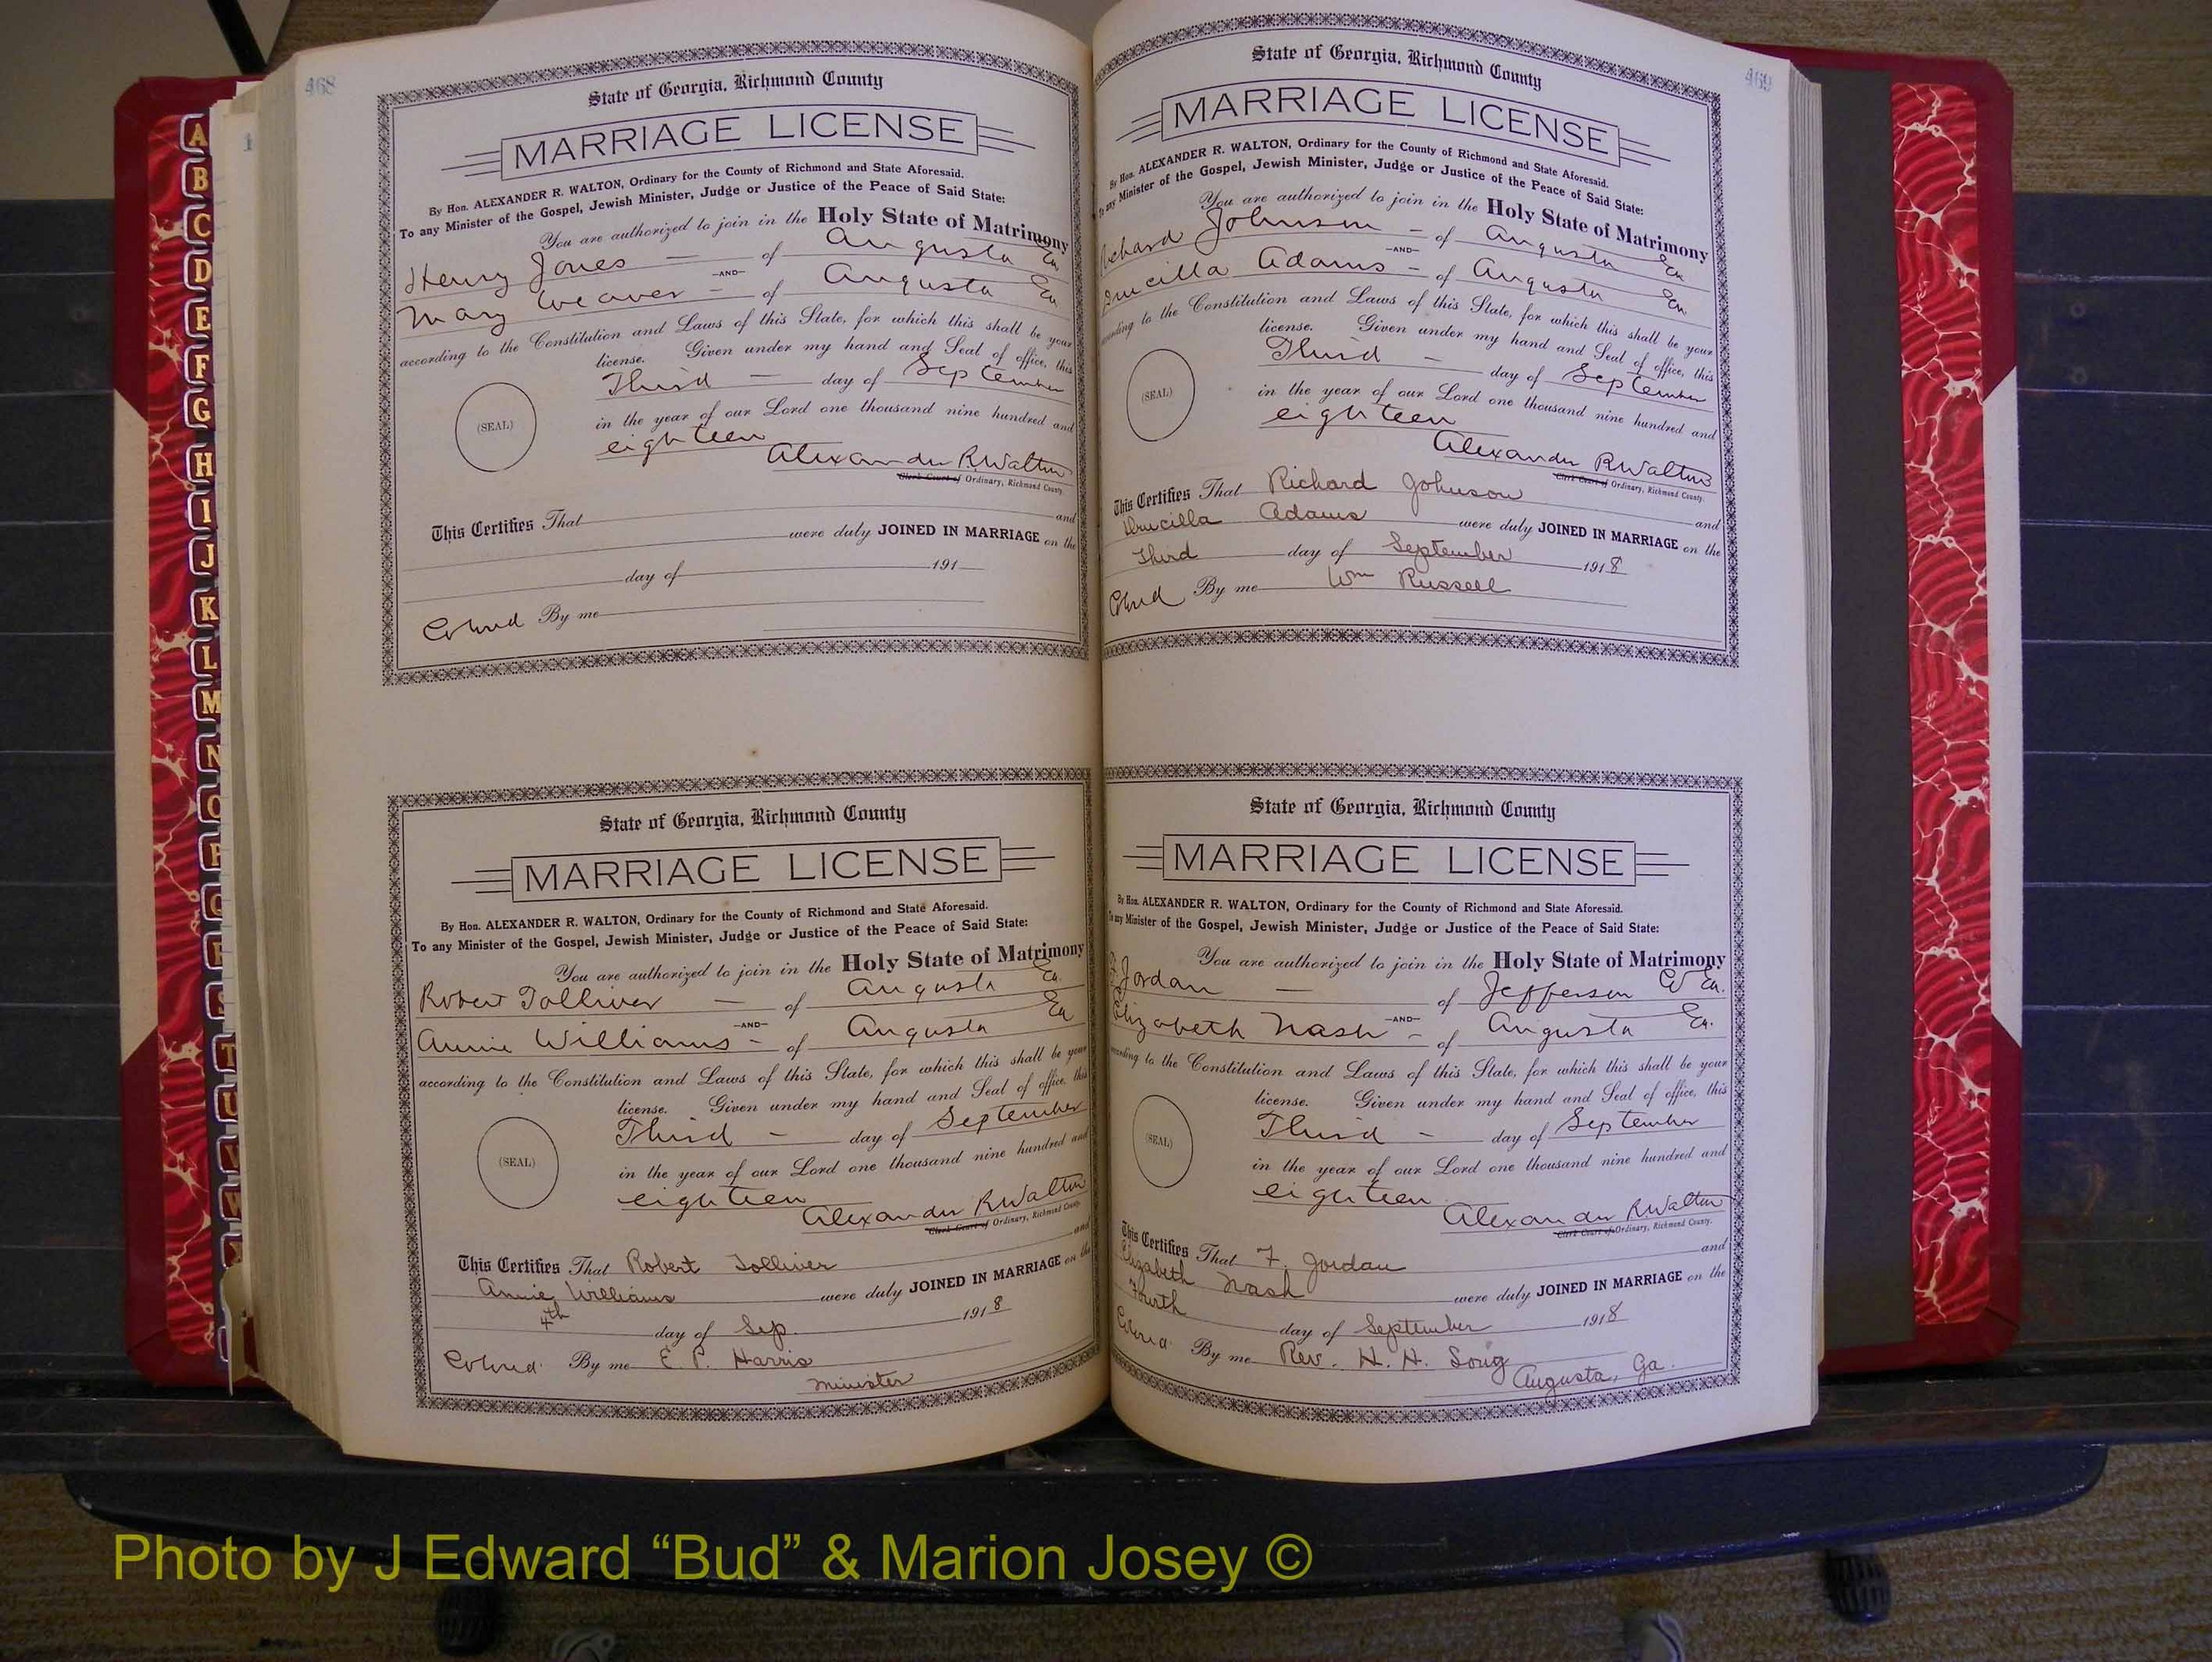 468
State of Georgia, Richmond County
MARRIAGE LICENSE
By Hon. ALEXANDER R. WALTON, Ordinary for the County of Richmond and State Aforesaid.
To any Minister of the Gospel, Jewish Minister, Judge or Justice of the Peace of Said State:
You are authorized to join in the Holy State of Matrimony
Henry Jones — of Augusta Ga
—AND—
Mary Weaver — of Augusta Ga
according to the Constitution and Laws of this State, for which this shall be your
license. Given under my hand and Seal of office, this
Third — day of September
(SEAL)
in the year of our Lord one thousand nine hundred and
eighteen
Alexander R Walton
Clerk Court of Ordinary, Richmond County.
This Certifies That and
were duly JOINED IN MARRIAGE on the
day of 191
Colored By me
State of Georgia, Richmond County
MARRIAGE LICENSE
By Hon. ALEXANDER R. WALTON, Ordinary for the County of Richmond and State Aforesaid.
To any Minister of the Gospel, Jewish Minister, Judge or Justice of the Peace of Said State:
You are authorized to join in the Holy State of Matrimony
Robert Tolliver — of Augusta Ga.
—AND—
Annie Williams — of Augusta Ga
according to the Constitution and Laws of this State, for which this shall be your
license. Given under my hand and Seal of office, this
Third — day of September
(SEAL)
in the year of our Lord one thousand nine hundred and
eighteen
Alexander R Walton
Clerk Court of Ordinary, Richmond County.
This Certifies That Robert Tolliver and
Annie Williams were duly JOINED IN MARRIAGE on the
4th day of Sep. 1918
Colored By me E. P. Harris
minister
469
State of Georgia, Richmond County
MARRIAGE LICENSE
By Hon. ALEXANDER R. WALTON, Ordinary for the County of Richmond and State Aforesaid.
To any Minister of the Gospel, Jewish Minister, Judge or Justice of the Peace of Said State:
You are authorized to join in the Holy State of Matrimony
Richard Johnson — of Augusta Ga
—AND—
Drucilla Adams — of Augusta Ga
according to the Constitution and Laws of this State, for which this shall be your
license. Given under my hand and Seal of office, this
Third — day of September
(SEAL)
in the year of our Lord one thousand nine hundred and
eighteen
Alexander R Walton
Clerk Court of Ordinary, Richmond County.
This Certifies That Richard Johnson and
Drucilla Adams were duly JOINED IN MARRIAGE on the
Third day of September 1918
Colored By me Wm Russell
State of Georgia, Richmond County
MARRIAGE LICENSE
By Hon. ALEXANDER R. WALTON, Ordinary for the County of Richmond and State Aforesaid.
To any Minister of the Gospel, Jewish Minister, Judge or Justice of the Peace of Said State:
You are authorized to join in the Holy State of Matrimony
F Jordan — of Jefferson Co Ga.
—AND—
Elizabeth Nash — of Augusta Ga.
according to the Constitution and Laws of this State, for which this shall be your
license. Given under my hand and Seal of office, this
Third — day of September
(SEAL)
in the year of our Lord one thousand nine hundred and
eighteen
Alexander R Walton
Clerk Court of Ordinary, Richmond County.
This Certifies That F. Jordan and
Elizabeth Nash were duly JOINED IN MARRIAGE on the
Fourth day of September 1918
Colored By me Rev. H. H. Song
Augusta, Ga.
A
B
C
D
E
F
G
H
I
J
K
L
M
N
O
P
Q
R
S
T
U
V
W
Photo by J Edward “Bud” & Marion Josey ©